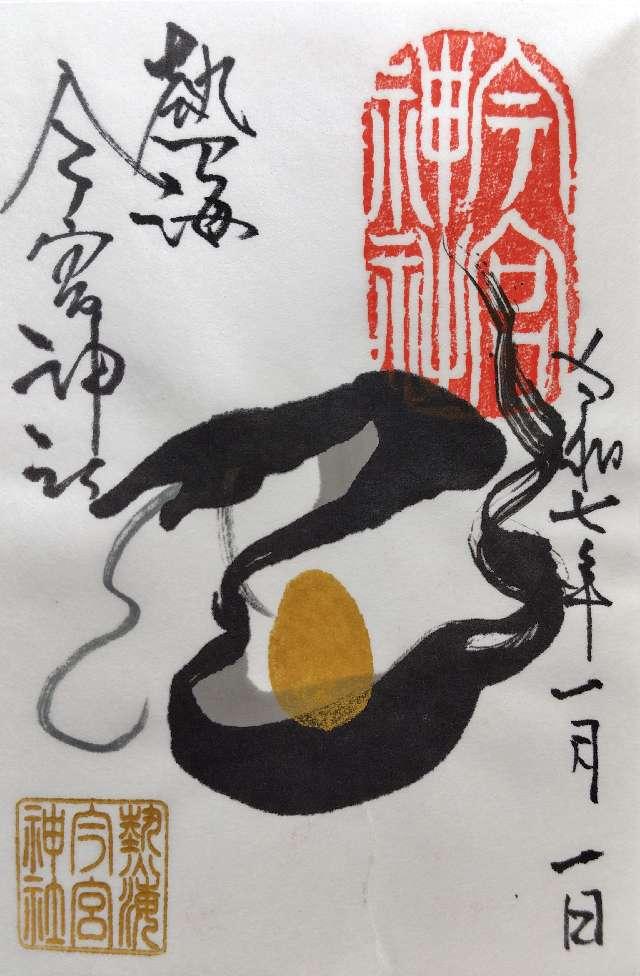 令和七年一月一日
今宮
神社
熱海
今宮神社
熱海
今宮
神社